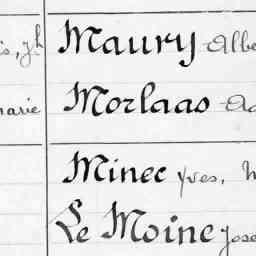 is, Jh Maury Albe
marie Morlaas Ad
Minec Yves, M
Le Moine Jose